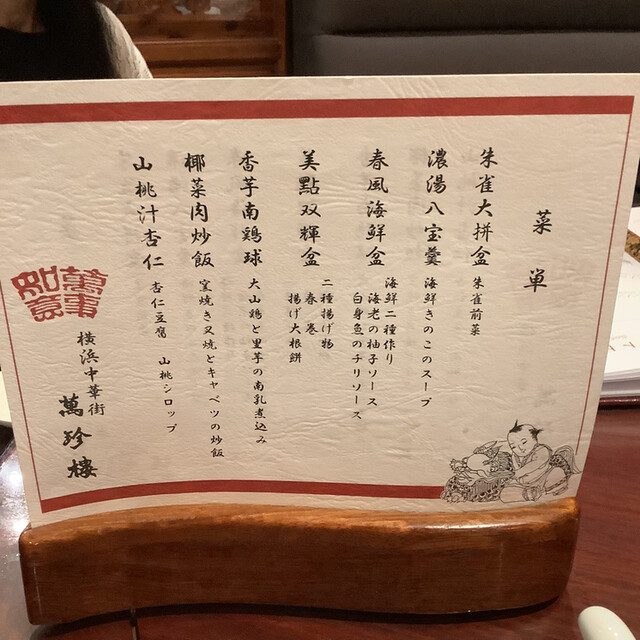 菜単
朱雀大拼盆
朱雀前菜
濃湯八宝羹
海鮮きのこのスープ
春風海鮮盆
海鮮二種作り
海老の柚子ソース
白身魚のチリソース
美點双輝盆
二種揚げ物
春巻
揚げ大根餅
香芋南鶏球
大山鶏と里芋の南乳煮込み
椰菜肉炒飯
窯焼き叉焼とキャベツの炒飯
山桃汁杏仁
杏仁豆腐 山桃シロップ
萬事
如意
横浜中華街
萬珍樓